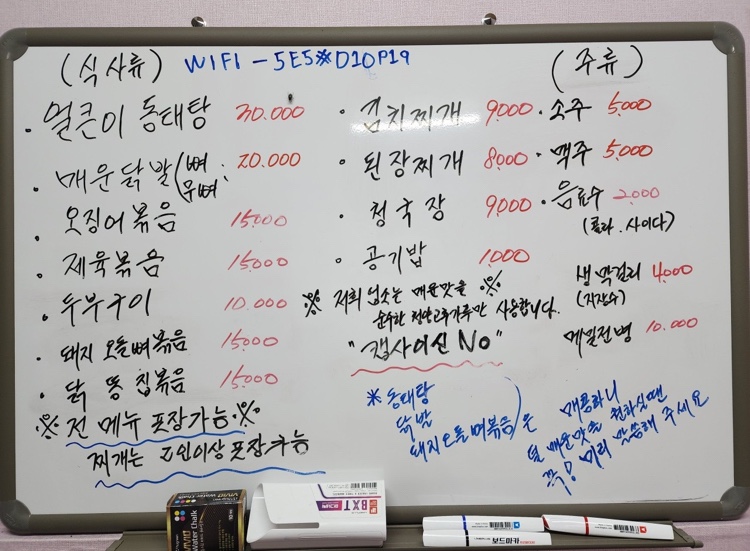 (식사류) WIFI - 5E5※D10P19
· 얼큰이 동태탕 30.000
· 매운닭발 (뼈, 무뼈) 20.000
· 오징어볶음 15000
· 제육볶음 15000
· 두부구이 10.000
· 돼지오돌뼈볶음 15000
· 닭똥집볶음 15000
※ 전 메뉴 포장가능 ※
찌개는 2인이상 포장가능
· 김치찌개 9,000
· 된장찌개 8,000
· 청국장 9,000
· 공기밥 1000
※ 저희 업소는 매운맛을 ※
순수한 청양고추가루만 사용합니다.
"캡사이신 No"
(주류)
· 소주 5,000
· 맥주 5,000
· 음료수 2.000
(콜라. 사이다)
생막걸리 4,000
(지장수)
메밀전병 10.000
※ 동태탕
닭발
돼지오돌뼈볶음)은
매콤하니
덜 매운맛을 원하실땐
꼭! 미리 말씀해 주세요
VIVID
Water Chalk
BXT
카파보드